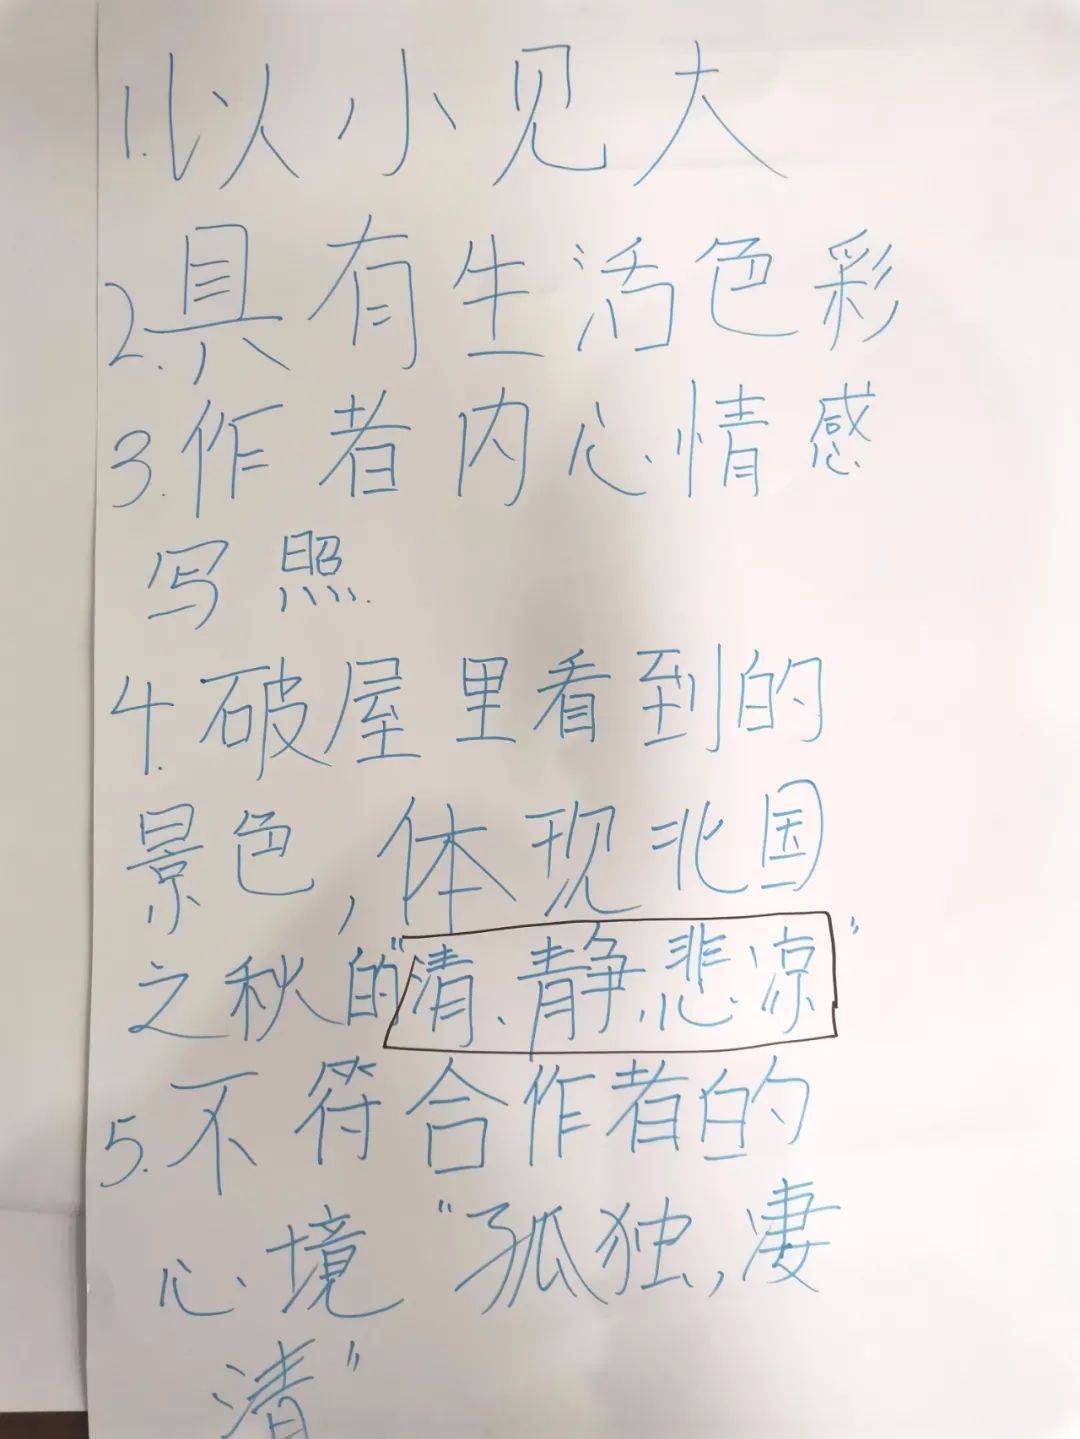 1.以小见大
2.具有生活色彩
3.作者内心情感
写照.
4.破屋里看到的
景色,体现北国
之秋的“清、静、悲凉”
5.不符合作者的
心境“孤独,凄
清”